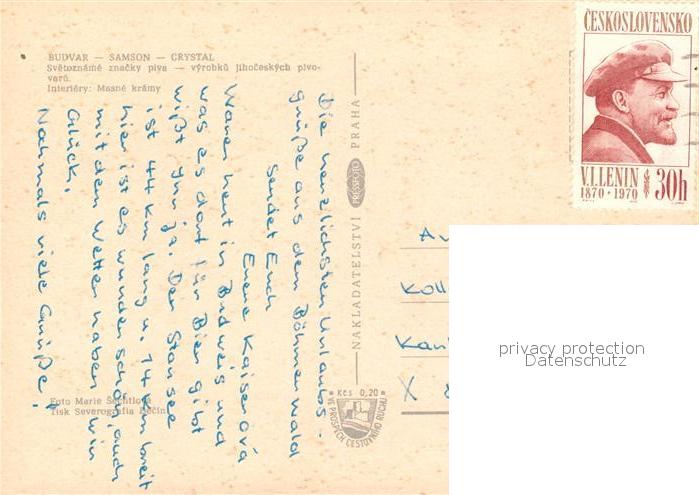 BUDVAR — SAMSON — CRYSTAL
Světoznámé značky piva — výrobků jihočeských pivo-
varů.
Interiéry: Masné krámy
Die herzlichsten Urlaubs-
grüße aus dem Böhmerwald
sendet Euch
Euere Kaiserová
Waren heut in Budweis und
was es dort für Bier gibt
wißt Ihr ja. Der Stausee
ist 44 km lang u. 14 km breit
hier ist es wunderschön, auch
mit dem Wetter haben wir
Glück.
Nochmals viele Grüße!
Foto Marie Šechtlová
Tisk Severografia Děčín
NAKLADATELSTVÍ PRESSFOTO PRAHA
Kčs 0,20
VE PROSPĚCH CESTOVNÍHO RUCHU
ČESKOSLOVENSKO
V.I.LENIN
1870-1970
30h
Koll
X 8
privacy protection
Datenschutz